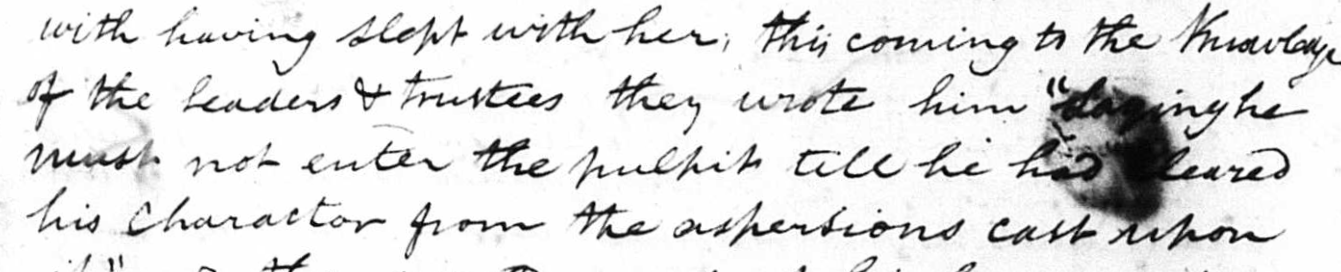 with having slept with her, this coming to the Knowledge
of the leaders & trustees they wrote him "saying he
must not enter the pulpit till he had cleared
his charactor from the aspersions cast upon
it"